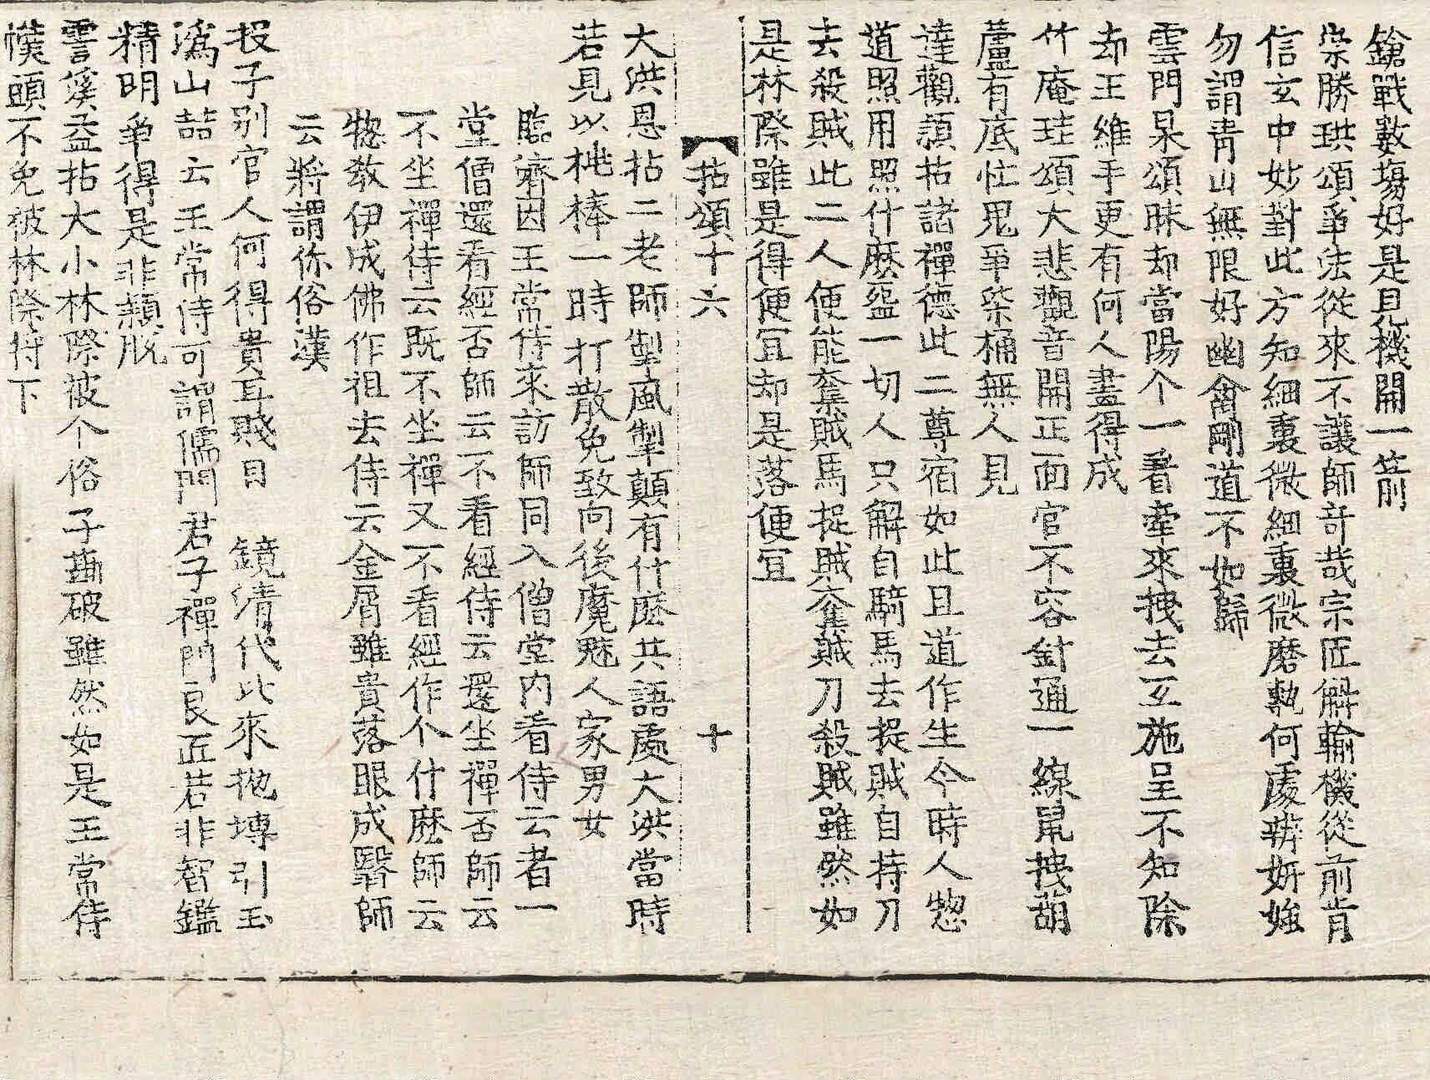 鎗戰數塲好是且機開一箭
崇勝珙頌爭法從來不讓師奇哉宗匠解輸機從前肯
信玄中妙對此方知細裏微細裏微磨勘何處辨妍媸
勿謂靑山無限好幽禽剛道不如歸
雲門杲頌昧却當陽个一着牽來拽去互施呈不知除
却王維手更有何人畫得成
竹庵珪頌大悲觀音開正面官不容針通一線鼠拽葫
蘆有底忙鬼爭柒桶無人見
達觀頴拈諸禪德此二尊宿如此且道作生今時人惣
道照用照什麽盌一切人只解自騎馬去捉賊自持刀
去殺賊此二人便能奪賊馬捉賊奪賊刀殺賊雖然如
是林際雖是得便冝却是落便冝
拈頌十六　十
大洪恩拈二老師掣風掣顚有什麽共語處大洪當時
若見以桃棒一時打散免致向後魔魅人家男女
臨濟因王常侍來訪師同入僧堂内看侍云者一
堂僧還看經否師云不看經侍云還坐禪否師云
不坐禪侍云既不坐禪又不看經作个什麽師云
惣教伊成佛作祖去侍云金屑雖貴落眼成翳師
云將謂你俗漢
投子别官人何得貴耳賤目　鏡清代比來抛塼引玉
潙山喆云王常侍可謂儒門君子禪門良匠若非智鑑
精明爭得是非頴脫
霅溪益拈大小林際被个俗子勘破雖然如是王常侍
幞頭不免被林際待下